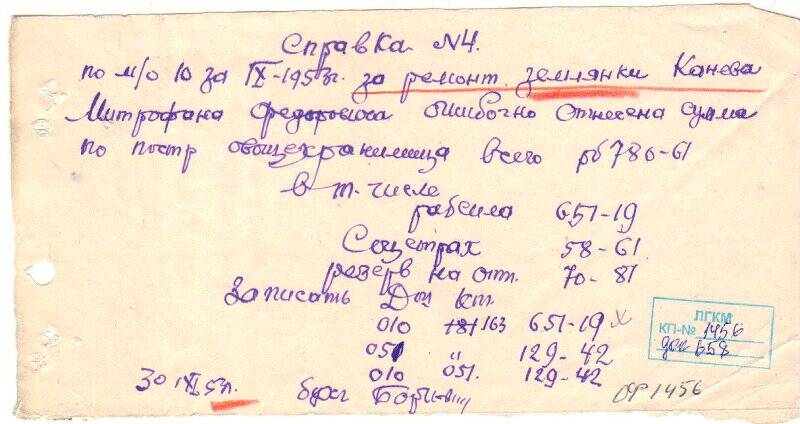 Справка N4.
по м/о 10 за IX-1953г. за ремонт землянки Канева
Митрофана Федоровича ошибочно отнесена сумма
по постр овощехранилища всего рб 780-61
в т. числе
рабсила 651-19
Соцстрах 58-61
резерв на отп. 70-81
Записать Дт Кт.
010 163 651-19
051 " 129-42
010 051. 129-42
30/IX 53г. бухг
ЛГКМ
КП-№ 1456
док 658
ОР1456